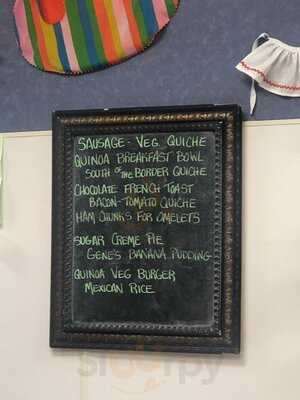 Sausage - Veg Quiche
Quinoa Breakfast Bowl
South of the Border Quiche
Chocolate French Toast
Bacon-Tomato Quiche
Ham Chunks for Omelets
Sugar Creme Pie
Gene's Banana Pudding
Quinoa Veg Burger
Mexican Rice
Sirpy